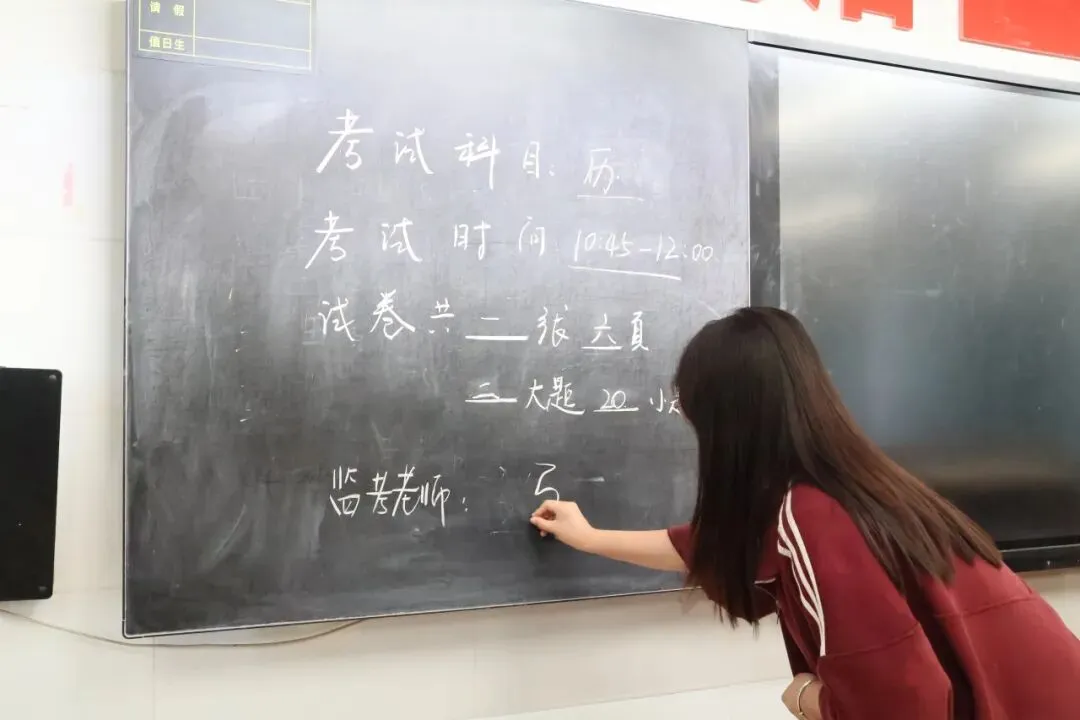 请 假
值日生
考试科目: 历
考试时间: 10:45-12:00
试卷共 二 张 六 页
二 大题 20 小
监考老师: